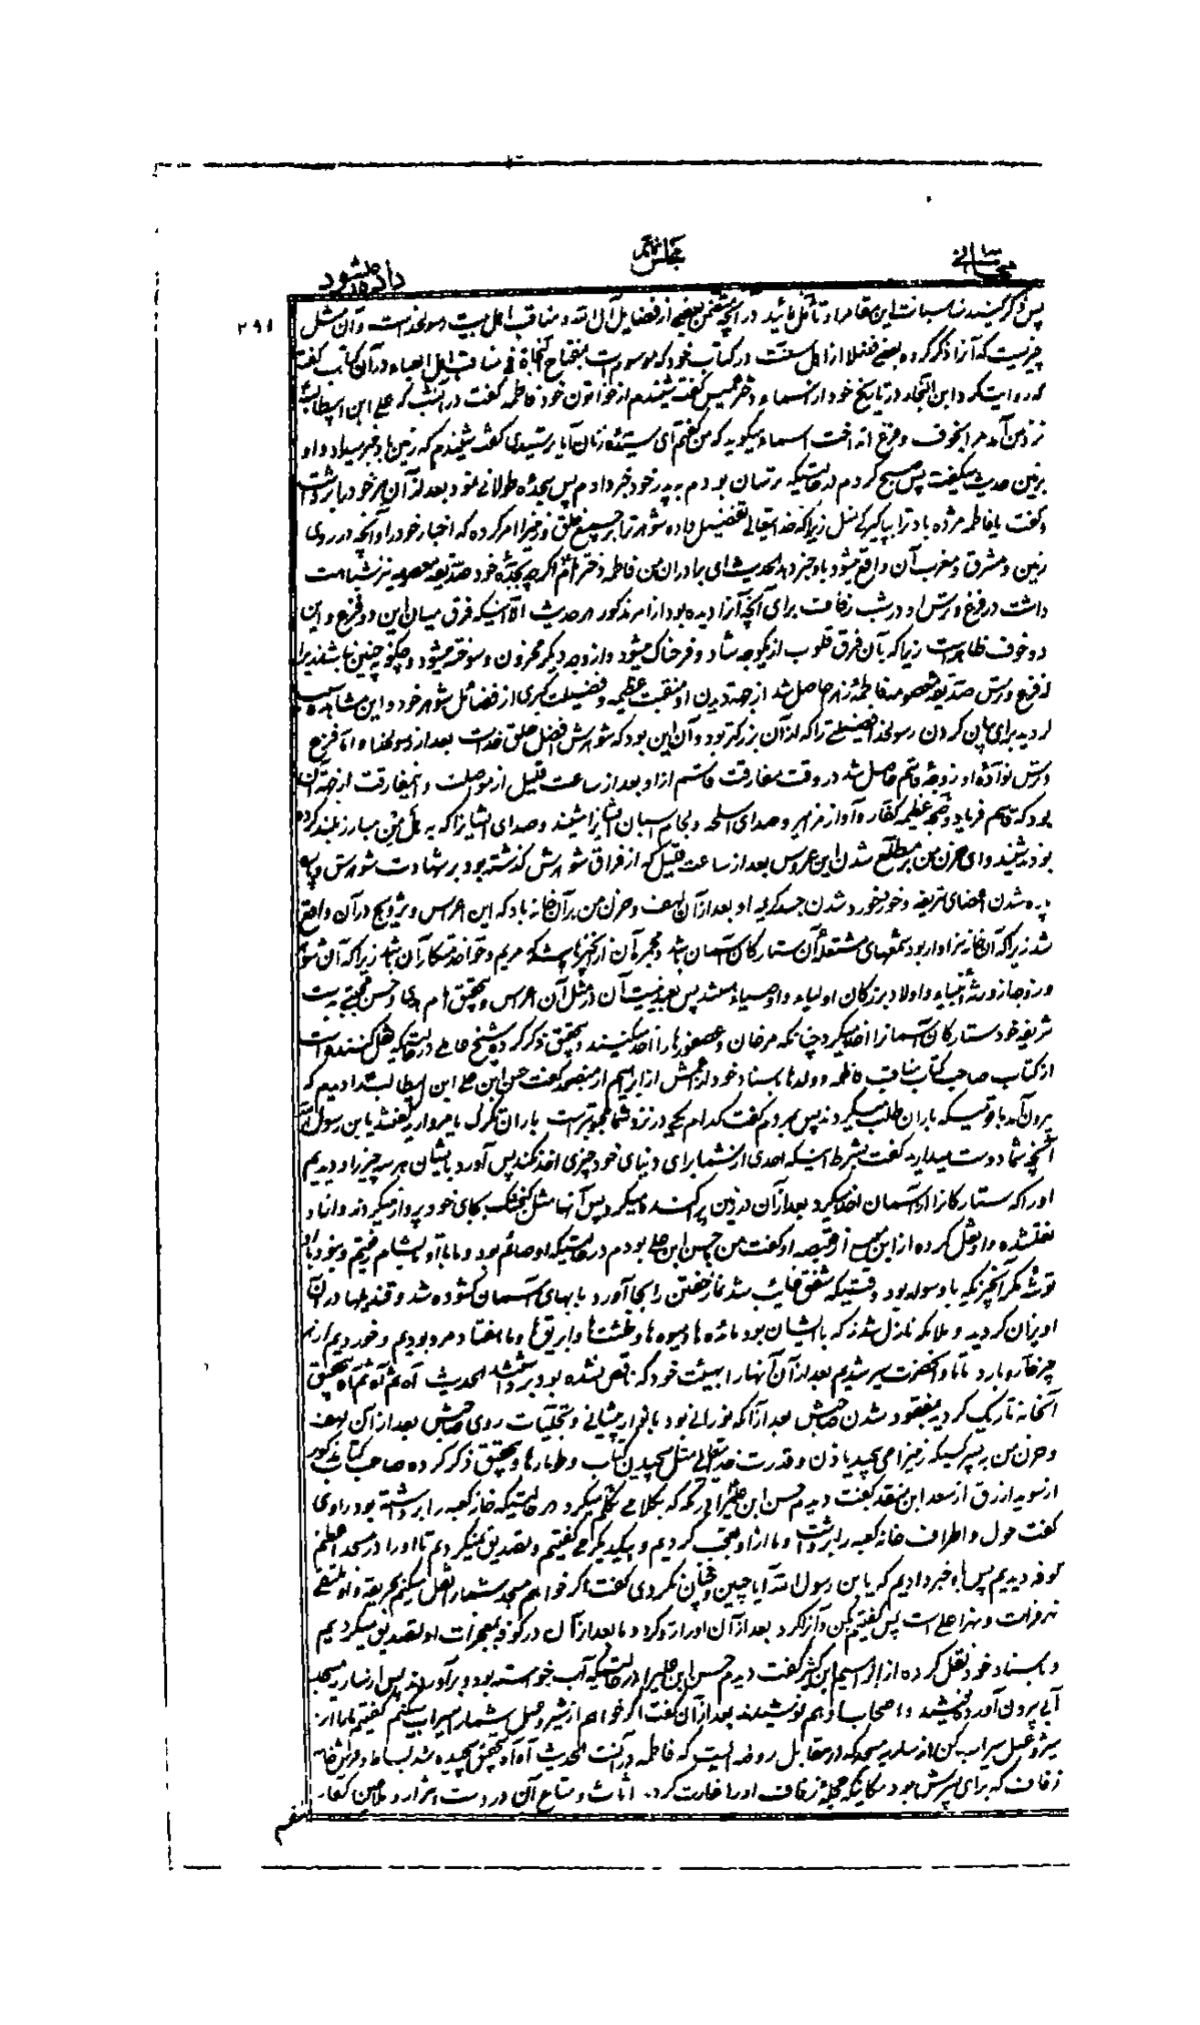 مجلس
داده شود
۲۹۱
پس ذکر کنید مناسبات این مقام را و تأمل نمائید در آنچه متضمن بعضی از فضایل آل الله و مناقب اهل بیت رسولخداست و آن مثل
چیزیست که آنرا ذکر کرده بعضی فضلا از اهل سنت در کتاب خود که موسوم است بمفتاح النجاة فی مناقب اهل العباء در آن کتاب گفته
که روایت کرد ابن النجار در تاریخ خود از اسماء دختر عمیس گفت شنیدم از خواتون خود فاطمه گفت در آنشب که علی ابن ابیطالب
نزد من آمد مرا بخوف و فزع انداخت اسماء میگوید که من گفتم آی سیده زنان آیا ترسیدی گفت شنیدم که زمین با و خبر میداد و او
بزمین حدیث میگفت پس صبح کردم در حالتیکه ترسان بودم به پدر خود خبر دادم پس سجده طولانی نمود بعد از آن سر خود را برداشت
و گفت یا فاطمه مژده باد ترا بپاکیزگی نسل زیرا که خدایتعالی تفضیل داده شوهر ترا بر جمیع خلق و زمین را امر کرده که اخبار خود را و آنچه در روی
زمین و مشرق و مغرب آن واقع میشود باو خبر دهد الحدیث ای برادران من فاطمه دختر امام اگر چه بجده خود صدیقه معصومه نیز شباهت
داشت در فزع و ترس او در شب زفاف برای آنچه آنرا دیده بود از امر مذکور در حدیث الا آنکه فرق میان این دو فزع و این
دو خوف ظاهر است زیرا که بآن فرق قلوب از یکوجه شاد و فرحناک میشود و از وجه دیگر محزون و سوخته میشود و چگونه چنین نباشد زیرا
که فزع و ترس صدیقه معصومه فاطمه زهرا حاصل شد از جهة دیدن او منقبت عظیمه و فضیلت کبری از فضائل شوهر خود و این مشاهده سبب
گردید برای بیان کردن رسولخدا فضیلتی را که از آن بزرگتر بود و آن این بود که شوهرش افضل خلق خداست بعد از رسولخدا و اما فزع
و ترس نواده او زوجه قاسم حاصل شد در وقت مفارقت قاسم از او بعد از ساعت قلیل از مواصلت و اینمفارقت از جهة آن
بود که قاسم فریاد و ضجه عظیمه کفار و آواز مزامیر و صدای اسلحه و لجام اسبان اشقیا را شنید و صدای اشقیا را که به هل من مبارز بلند کرده
بودند شنید وای حزن من بر مطلع شدن این عروس بعد از ساعت قلیل که از فراق شوهرش گذشته بود بر شهادت شوهرش و پاره
پاره شدن اعضای شریفه و خورد خورد شدن جسد کریمه او بعد از آن لهف و حزن من بر آن خانه باد که این عروس و تزویج در آن واقع
شد زیرا که آنخانه سزاوار بود شمعهای مشتعله آن ستارگان آسمان باشد و مجمره آن از بخور بهشت و مریم و حوا خدمتکار آن باشد زیرا که آن شوهر
و زوجه از ورثه انبیاء و اولاد بزرگان اولیاء و اوصیاء هستند پس بعید نیست آن در مثل آن عروس و بتحقیق امام هدی و حسن مجتبی بدست
شریفه خود ستارگان آسمانرا اخذ میکرد چنانکه مرغان و عصفورها را اخذ میکنند و بتحقیق ذکر کرده شیخ عاملی در حالتیکه نقل کننده است
از کتاب صاحب کتاب مناقب فاطمه و ولدها باسناد خود از اعمش از ابراهیم از منصور گفت حسن ابن علی ابن ابیطالب را دیدیم که
بیرون آمد با قومیکه باران طلب میکردند پس بمردم گفت کدام یکی در نزد شما محبوبتر است باران یا تگرگ یا مروارید گفتند یا بن رسول الله
آنچه شما دوست میدارید گفت بشرط اینکه احدی از شما برای دنیای خود چیزی اخذ نکند پس آورد بایشان هر سه چیز را و دیدیم
او را که ستارگان را از آسمان اخذ میکرد بعد از آن در زمین پراکنده میکرد پس آنها مثل گنجشک بجای خود پرواز میکردند
او صائم بود و ما با او بشام رفتیم و نبود با او
توشه مگر آنچیزیکه باو سوار بود وقتیکه شفق غایب شد نماز خفتن را بجا آورد بابهای آسمان گشوده شد و قندیلها در آن
آویزان گردید و ملائکه نازل شدند که با ایشان بود مائده ها و میوه ها و طشتها و ابریقها و ما هفتاد مرد بودیم و خوردیم از هر
چیز حار و بارد تا ما و آنحضرت سیر شدیم بعد از آن آنها را بهیئت خود که ناقص نشده بود برداشتند الحدیث آه ثم آه ثم آه بتحقیق
آنخانه تاریک گردید بمفقود شدن صاحبش بعد از آنکه نورانی بود بانوار پیشانی و تجلیات روی صاحبش بعد از آن لهف
و حزن من بر پسر کسیکه زمین را می پیچید باذن و قدرت خدایتعالی مثل پیچیدن کتاب و طومارها و بتحقیق ذکر کرده صاحب کتاب مذکور
از سوید ازرق از سعد ابن منقذ گفت دیدم حسن ابن علی را در مکه که بکلامی تکلم میکرد در حالتیکه خانه کعبه را برداشته بود راوی
گفت حول و اطراف خانه کعبه را برداشت و ما از او تعجب کردیم و بیکدیگر می گفتیم و تصدیق نمیکردیم تا او را در مسجد اعظم
کوفه دیدیم پس باو خبر دادیم که یا بن رسول الله آیا چنین و چنان نکردی گفت اگر خواهم مسجد شما را نقل میکنم
نهر فرات و نهر اعلی است پس گفتیم بکن و آنرا کرد بعد از آن او را رد کرد و ما بعد از آن در کوفه بمعجزات او تصدیق میکردیم
و باسناد خود نقل کرده از ابراهیم ابن کثیر گفت دیدم حسن ابن علی را در حالتیکه آب خواسته بود و بر او دیر آوردند پس از ساریه مسجد
آبی بیرون آورد و نوشید و اصحاب او هم نوشیدند بعد از آن گفت اگر خواهم از شیر و عسل شما را سیراب میکنم گفتیم ما را از
شیر و عسل سیراب کن از ساریه مسجد که در مقابل روضه ایست که فاطمه در آنست الحدیث آه آه بتحقیق پیچیده شد بساط و فراش خانه
زفاف که برای پسرش بود مکانیکه حجله زفاف او را غارت کردند اثاث و متاع آن در دست اشرار و ملاعین کفار